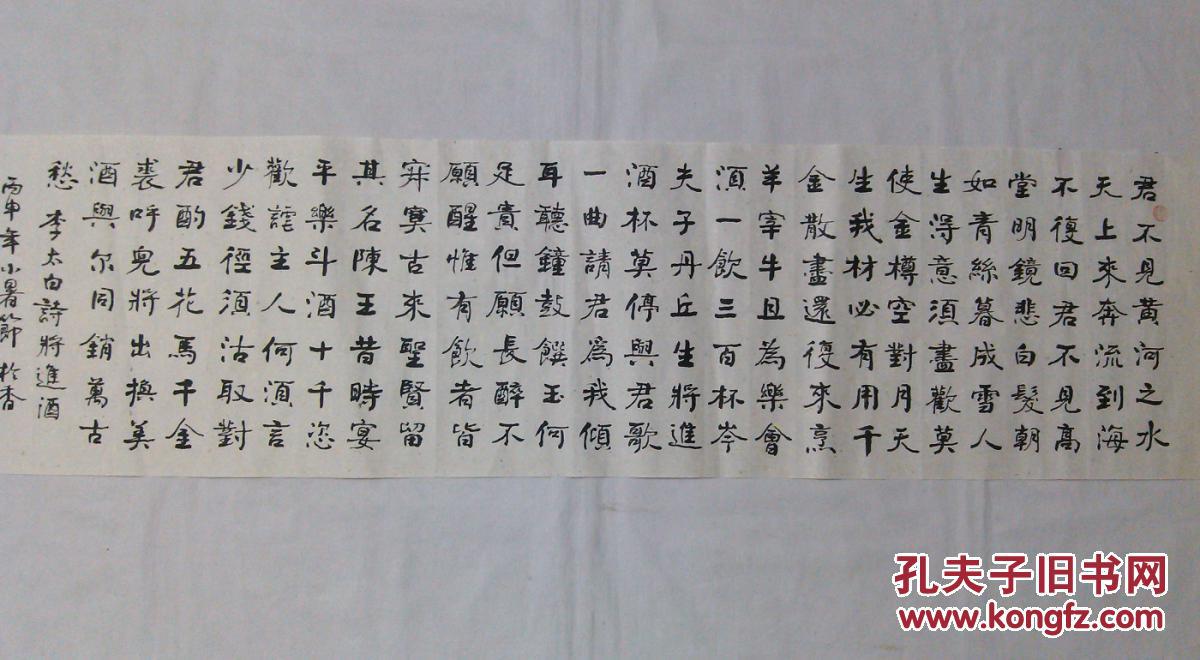 君不見黃河之水
天上來奔流到海
不復回君不見高
堂明鏡悲白髮朝
如青絲暮成雪人
生得意須盡歡莫
使金樽空對月天
生我材必有用千
金散盡還復來烹
羊宰牛且為樂會
須一飲三百杯岑
夫子丹丘生將進
酒杯莫停與君歌
一曲請君為我傾
耳聽鐘鼓饌玉何
足貴但願長醉不
願醒惟有飲者皆
寂寞古來聖賢留
其名陳王昔時宴
平樂斗酒十千恣
歡謔主人何須言
少錢徑須沽取對
君酌五花馬千金
裘呼兒將出換美
酒與尔同銷萬古
愁 李太白詩將進酒
丙申年小暑節於香
孔夫子旧书网
www.kongfz.com